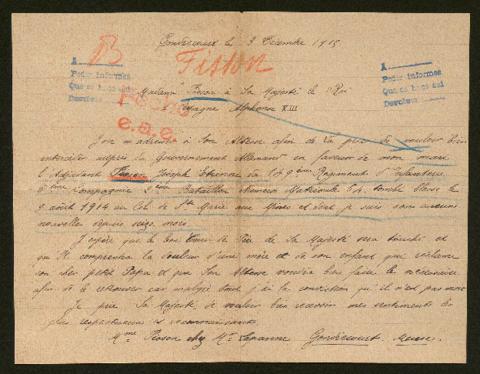 Gondrecourt le 3 Décembre 1915
B
Fisson
A
Pedir informes
Que se hace aquí
Devolver
A
Pedir informes
Que se hace aquí
Devolver
Madame Fisson à Sa Majesté le Roi
d'Espagne Alphonse XIII
e.a.e.
Je m'adresse à Son Altesse afin de la prier de vouloir bien
intercéder auprès du Gouvernement Allemand en faveur de mon mari
l'Adjudant Fisson Joseph 149ème Régiment d'Infanterie
Compagnie 2ème Bataillon Numéro Matricule tombé blessé le
9 août 1914 au Col de Ste Marie aux Mines et dont je suis sans aucune
nouvelle depuis seize mois
J'espère que le bon Coeur de Sa Majesté sera touché et
qu'Il comprendra la douleur d'une mère et de son enfant qui réclame
son cher petit Papa et que Son Altesse voudra bien faire le nécessaire
afin de le retrouver car malgré tout j'ai la conviction qu'il n'est pas mort
Je prie Sa Majesté de vouloir bien recevoir mes sentiments les
plus respectueux et reconnaissants
Mme Fisson chez Mr Gondrecourt. Meuse.